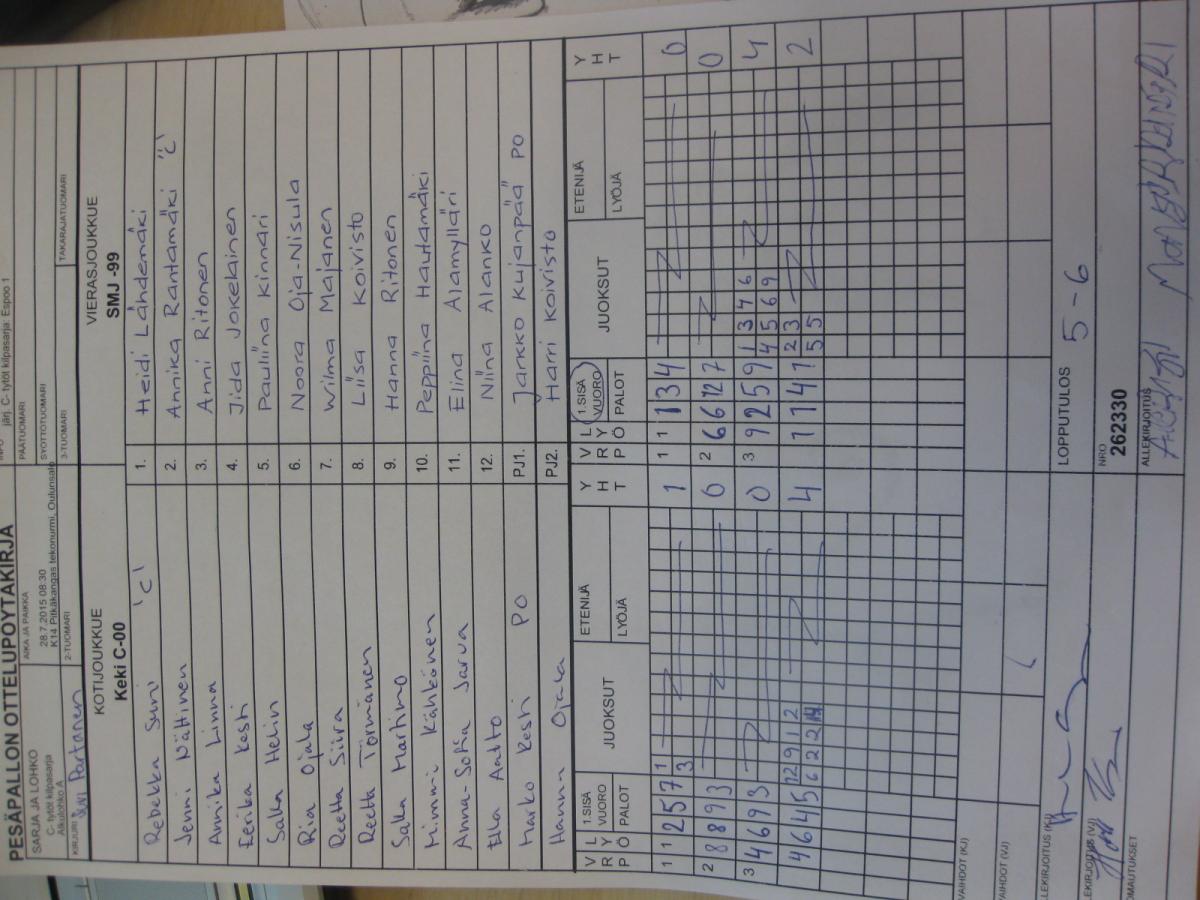 PESÄPALLON OTTELUPÖYTÄKIRJA
järj. C- tytöt kilpasarja: Espoo 1
SARJA JA LOHKO
C- tytöt kilpasarja
Alkulohko A
AIKA JA PAIKKA
28.7.2015 08:30
K14 Pitkäkangas tekonurmi, Oulunsalo
PÄÄTUOMARI
SYÖTTÖTUOMARI
KIRJURI
Partanen
2-TUOMARI
3-TUOMARI
TAKARAJATUOMARI
KOTIJOUKKUE
Keki C-00
VIERASJOUKKUE
SMJ -99
Rebekka Suni 'C' 1. Heidi Lähdemäki
Jenni Nättinen 2. Annika Rantamäki "C"
Annika Linna 3. Anni Ritonen
Eerika Kesti 4. Jida Jokelainen
Salla Helin 5. Pauliina Kinnari
Ria Ojala 6. Noora Oja-Nisula
Reetta Siira 7. Wilma Majanen
Reetta Törmänen 8. Liisa Koivisto
Salla Martimo 9. Hanna Ritonen
Mimmi Kähkönen 10. Peppiina Hautamäki
Anna-Sofia Jarva 11. Elina Alamylläri
Ella Aalto 12. Niina Alanko
Marko Kesti PO PJ1. Jarkko Kujanpää PO
Hannu Ojala PJ2. Harri Koivisto
V R P L Y Ö 1.SISÄ VUORO PALOT JUOKSUT ETENIJÄ LYÖJÄ Y H T V R P L Y Ö 1.SISÄ VUORO PALOT JUOKSUT ETENIJÄ LYÖJÄ Y H T
1 1 2 5 7 1 3 1 1 1 1 3 4 0
2 8 8 9 3 0 2 6 6 12 7 0
3 4 6 9 3 0 3 9 2 5 9 1 3 4 6 4 5 6 9 4
4 6 4 5 12 9 1 2 6 2 2 4 1 1 4 1 2 3 5 5 2
VAIHDOT (KJ)
VAIHDOT (VJ)
LLEKIRJOITUS (KJ)
LOPPUTULOS 5 - 6
LEKIRJOITUS (VJ)
NRO
262330
OMAUTUKSET
ALLEKIRJOITUS